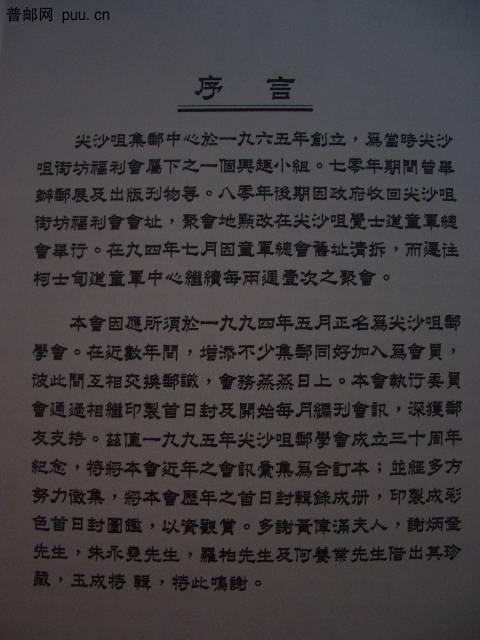 普邮网 puu.cn
序言
尖沙咀集郵中心於一九六五年創立，為當時尖沙
咀街坊福利會屬下之一個興趣小組。七零年期間曾舉
辦郵展及出版刊物等。八零年後期因政府收回尖沙咀
街坊福利會會址，聚會地點改在尖沙咀覺士道童軍總
會舉行。在九四年七月因童軍總會舊址清拆，而遷往
柯士甸道童軍中心繼續每兩週壹次之聚會。
本會因應所須於一九九四年五月正名為尖沙咀郵
學會。在近數年間，增添不少集郵同好加入為會員，
彼此間互相交換郵識，會務蒸蒸日上。本會執行委員
會通過相繼印製首日封及開始每月編刊會訊，深獲郵
友支持。茲值一九九五年尖沙咀郵學會成立三十周年
紀念，特將本會近年之會訊彙集為合訂本；並經多方
努力徵集，將本會歷年之首日封輯錄成冊，印製成彩
色首日封圖鑑，以資觀賞。多謝黃偉滿夫人，謝炳奎
先生，朱永堯先生，羅柏先生及何養業先生借出其珍
藏，玉成特輯，特此鳴謝。